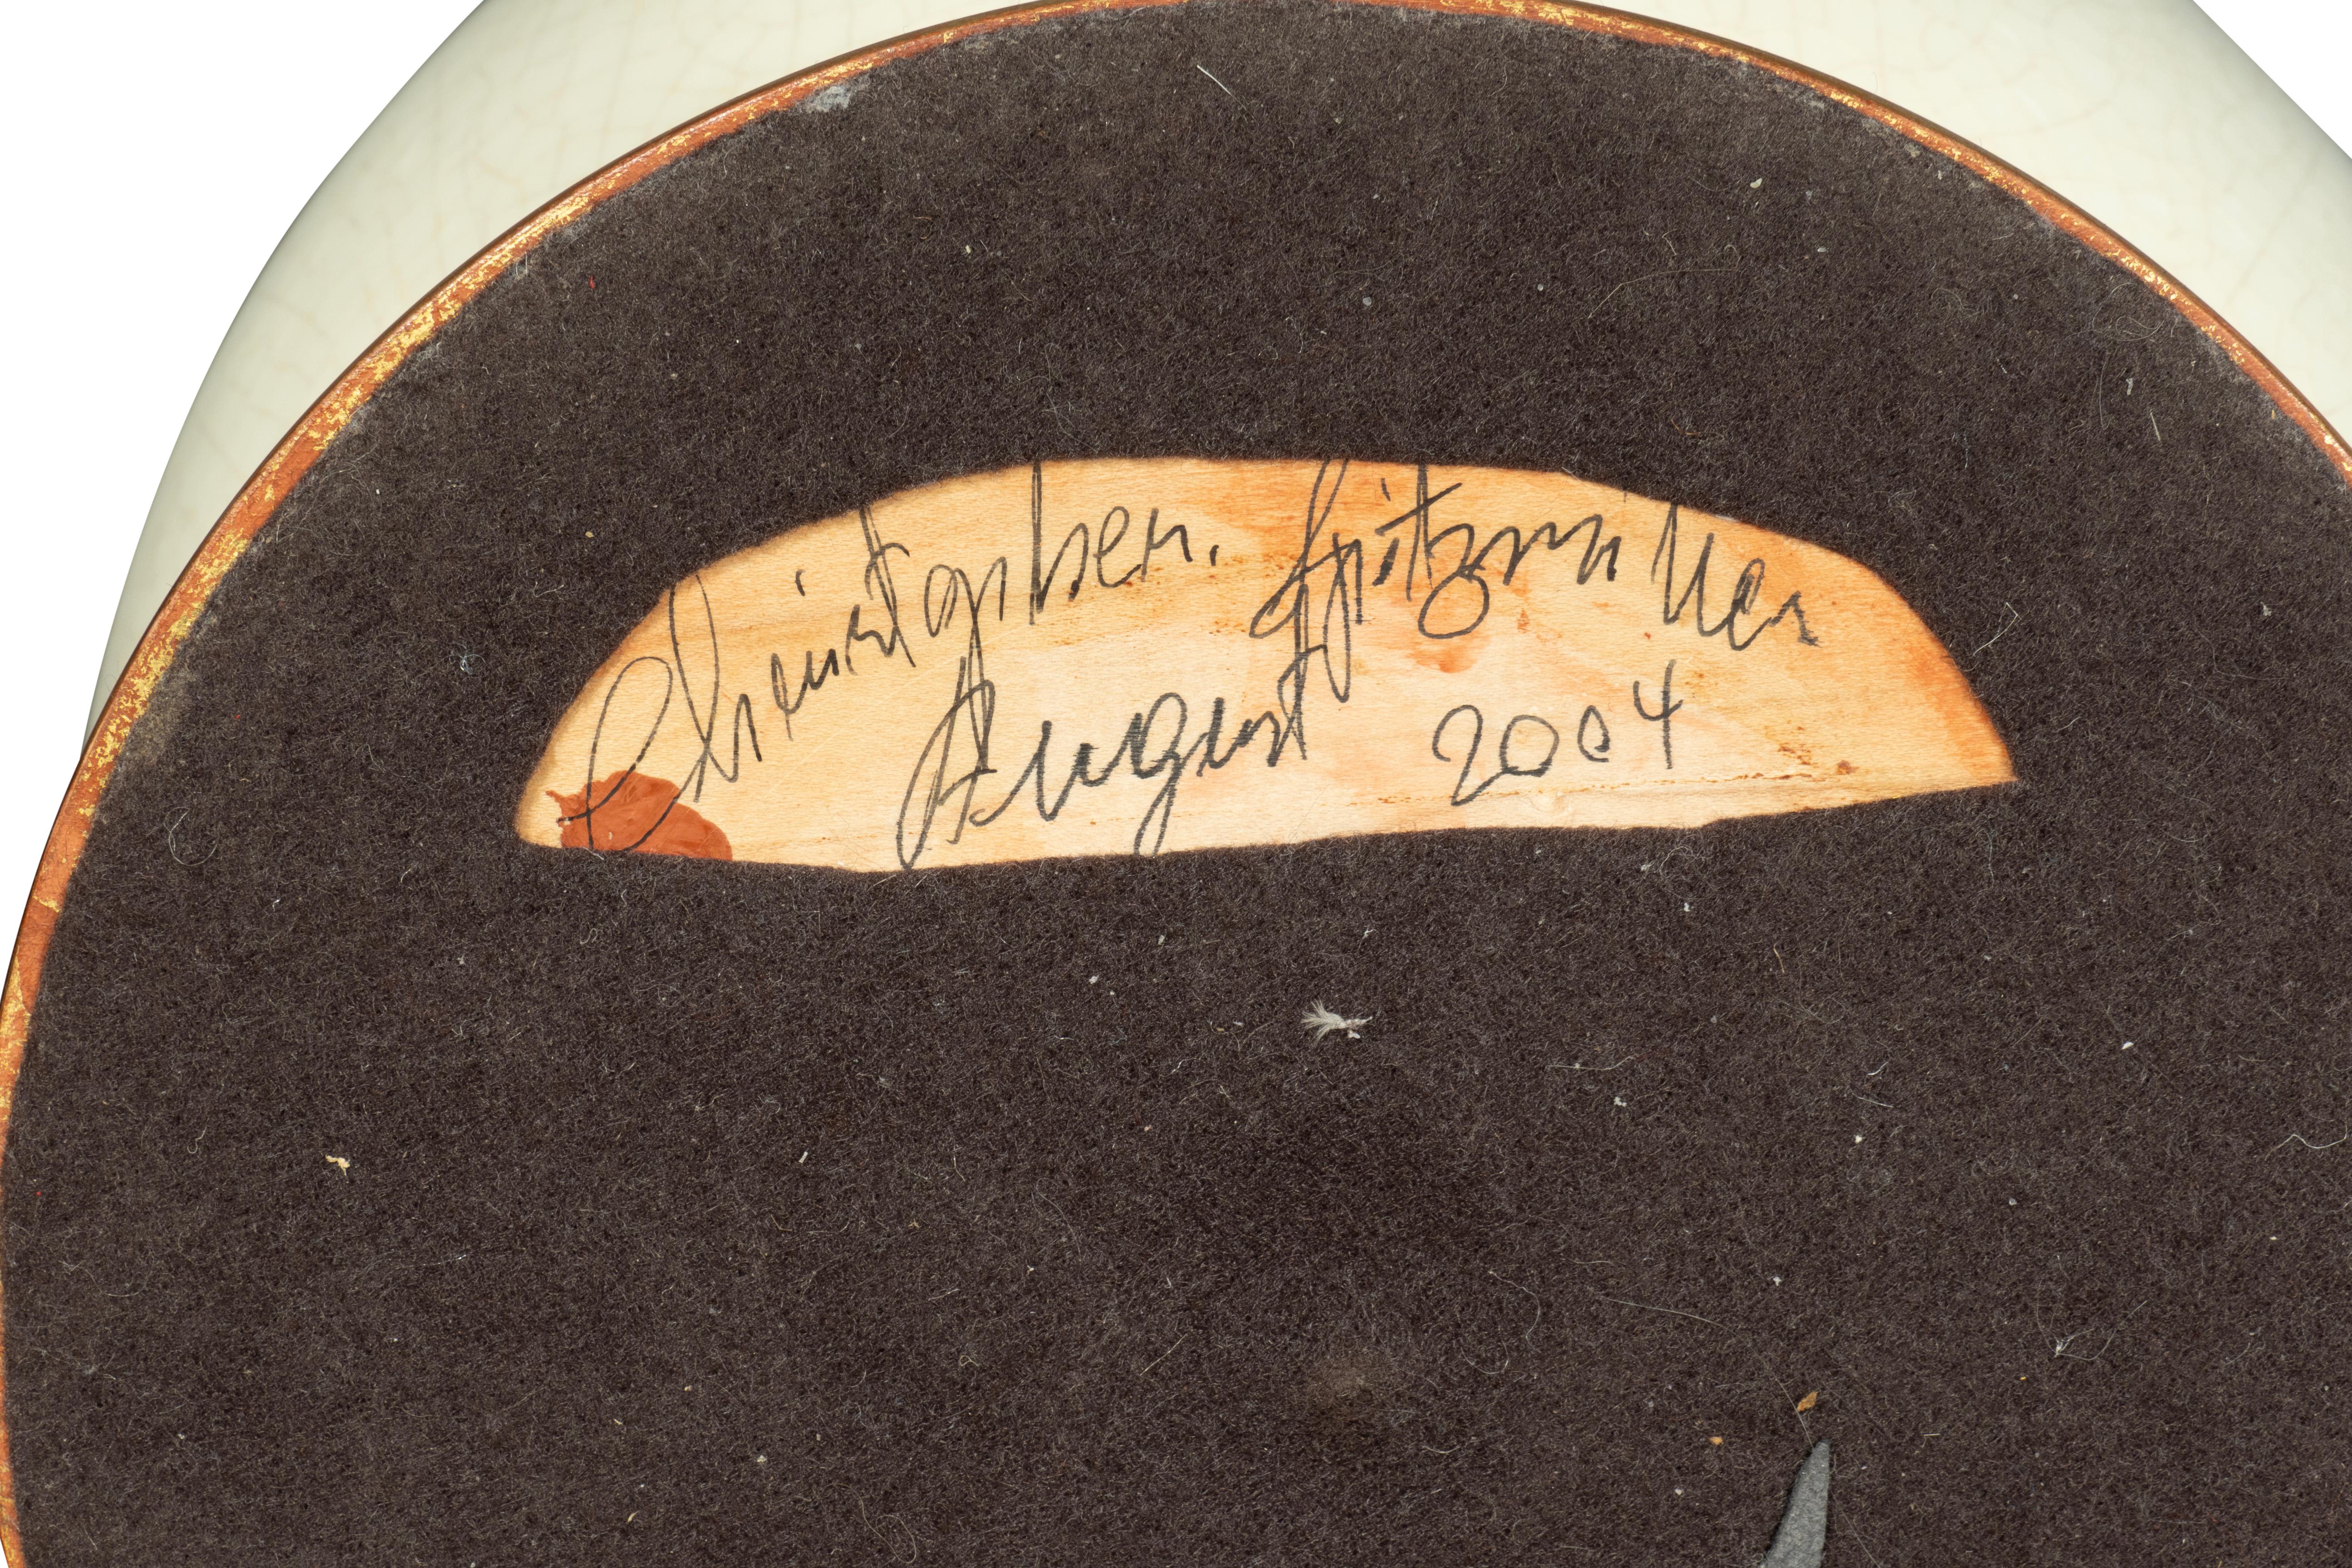 Christopher Spitzmiller
August 2004